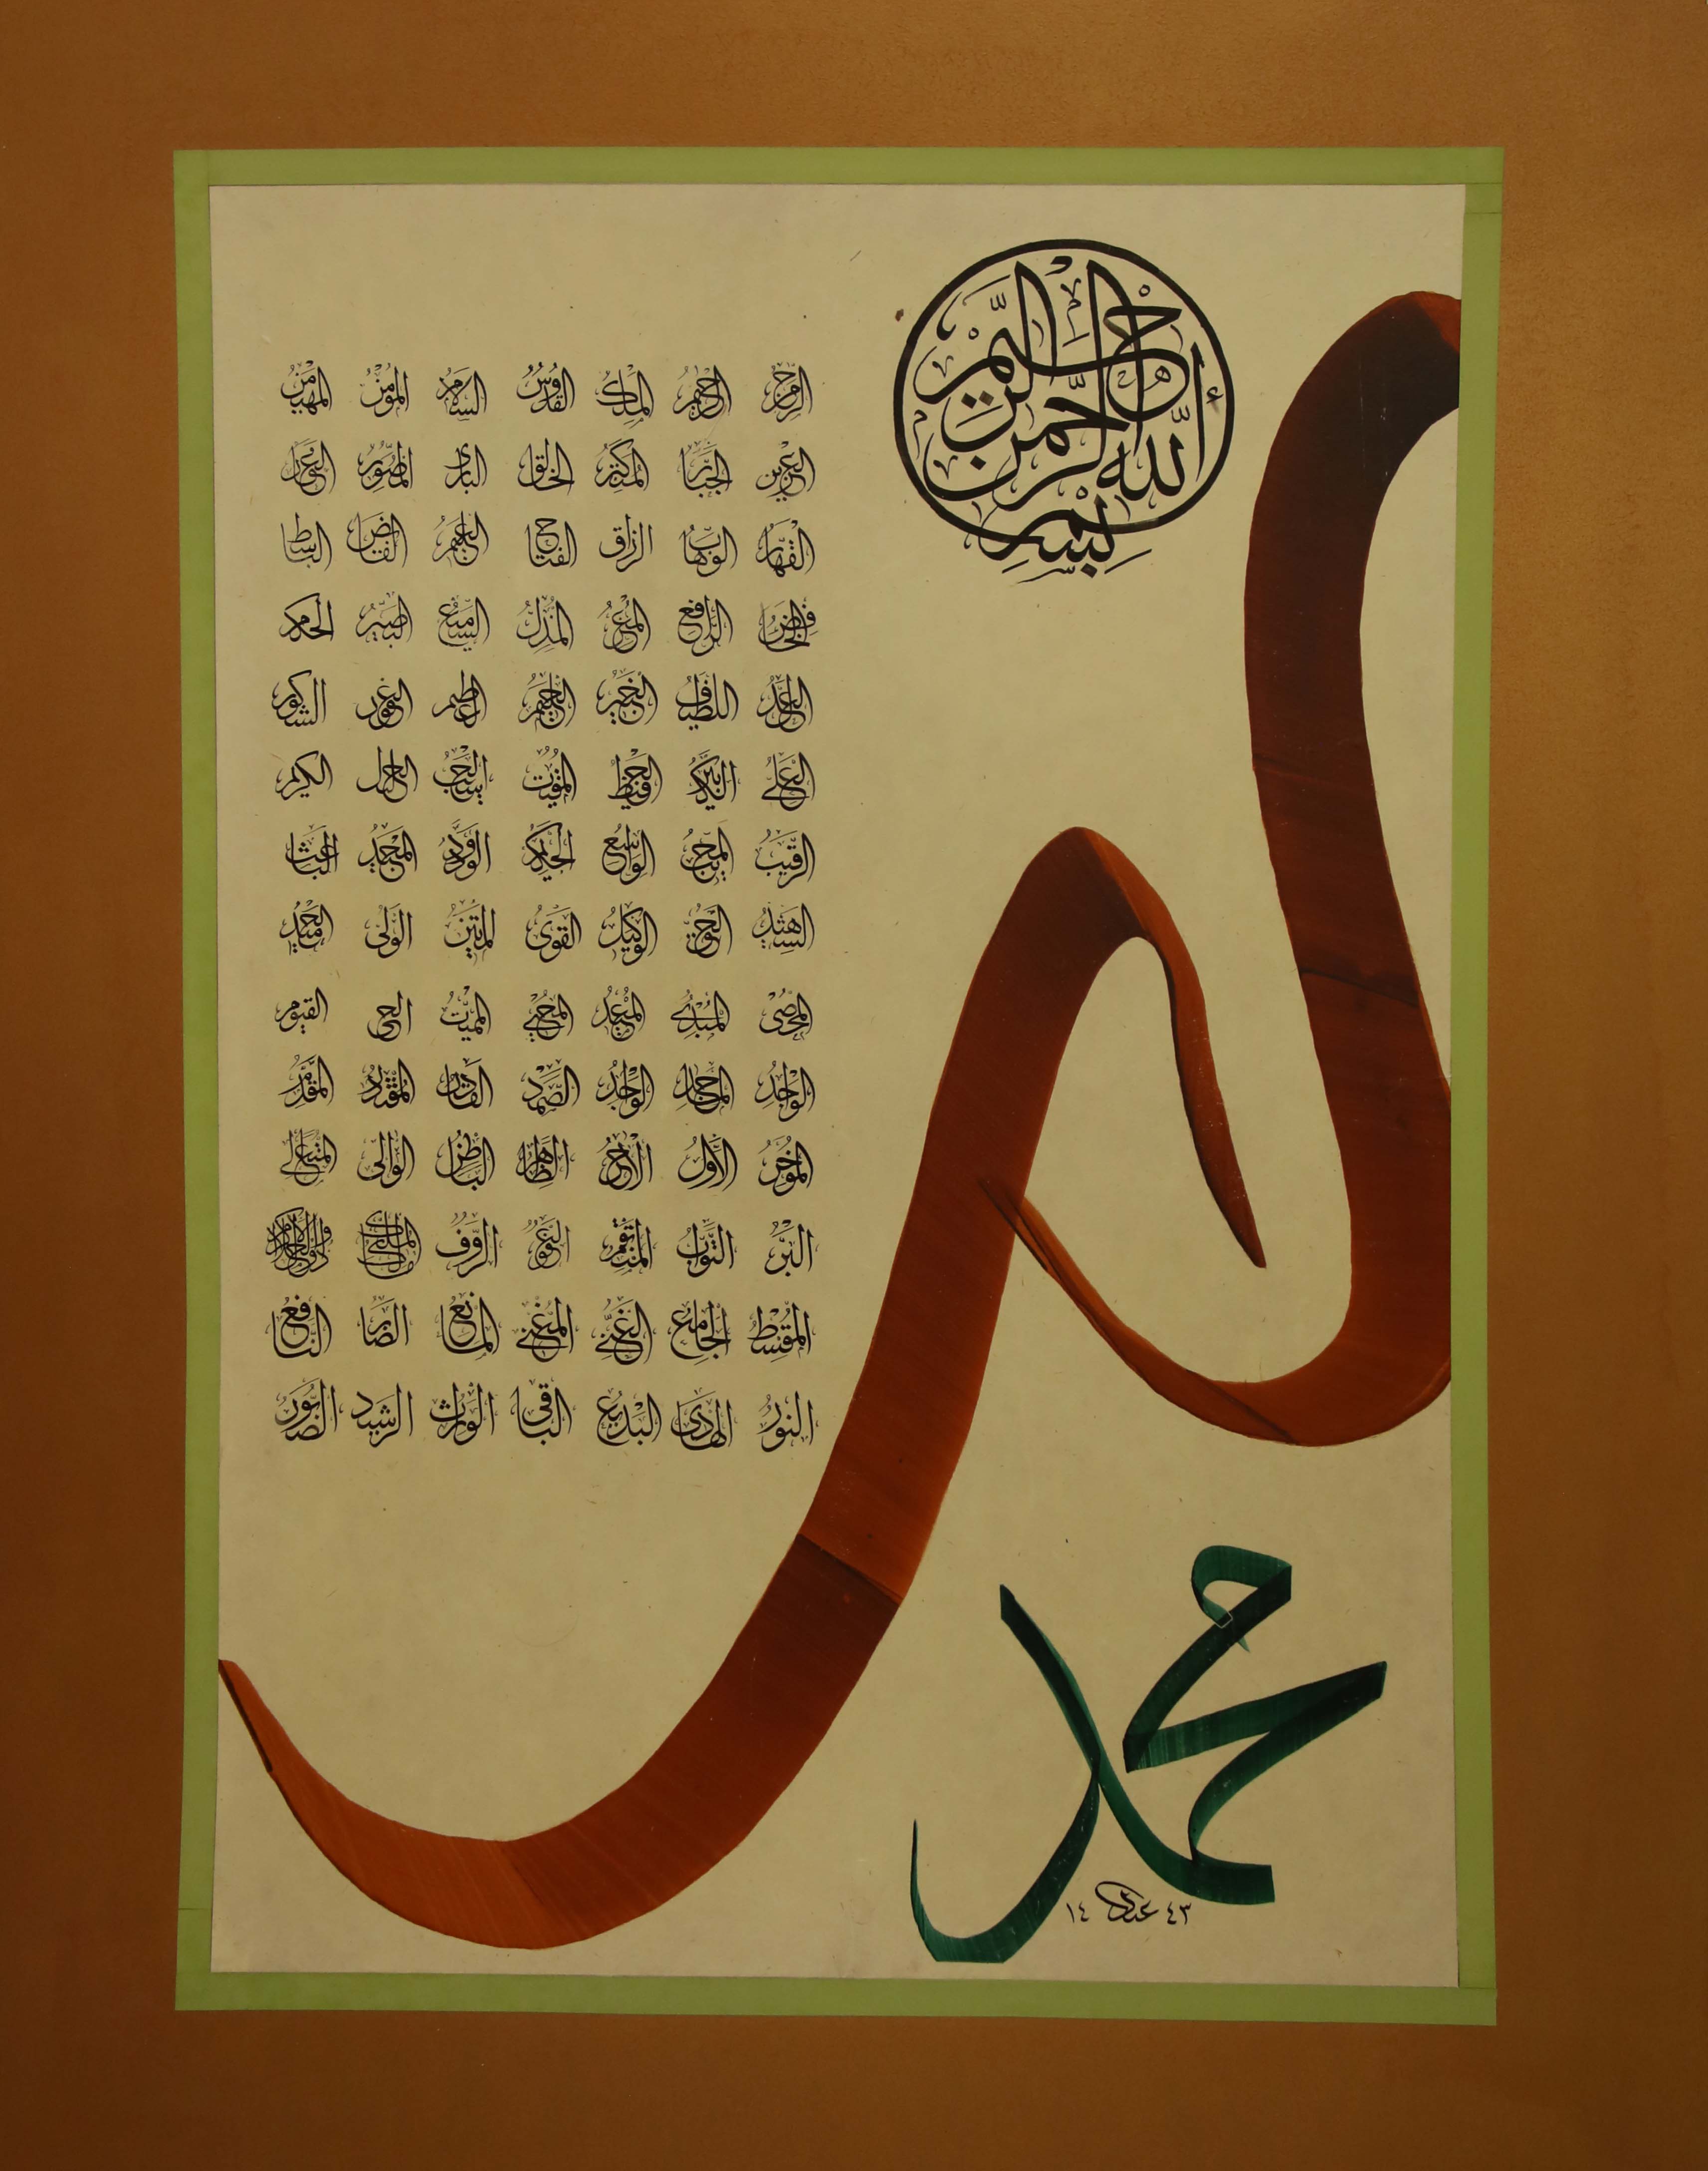 بسم
الله الرحمن الرحيم
الرحمن الرحيم الملك القدوس السلام المؤمن المهيمن
العزيز الجبار المتكبر الخالق البارئ المصور
القهار الوهاب الرزاق الفتاح العليم القابض الباسط
الخافض الرافع المعز المذل السميع البصير الحكم
العدل اللطيف الخبير الحليم العظيم الغفور الشكور
العلي الكبير الحفيظ المقيت الحسيب الجليل الكريم
الرقيب المجيب الواسع الحكيم الودود المجيد الباعث
الشهيد الحق الوكيل القوى المتين الولى الحميد
المحصى المبدئ المعيد المحيي المميت الحى القيوم
الواجد الماجد الواحد الصمد القادر المقتدر المقدم
المؤخر الأول الآخر الظاهر الباطن الوالى المتعالي
البر التواب المنتقم العفو الرؤف مالك الملك ذو الجلال والإكرام
المقسط الجامع الغني المغني المانع الضار النافع
النور الهادى البديع الباقى الوارث الرشيد الصبور
محمد
١٤٤٣